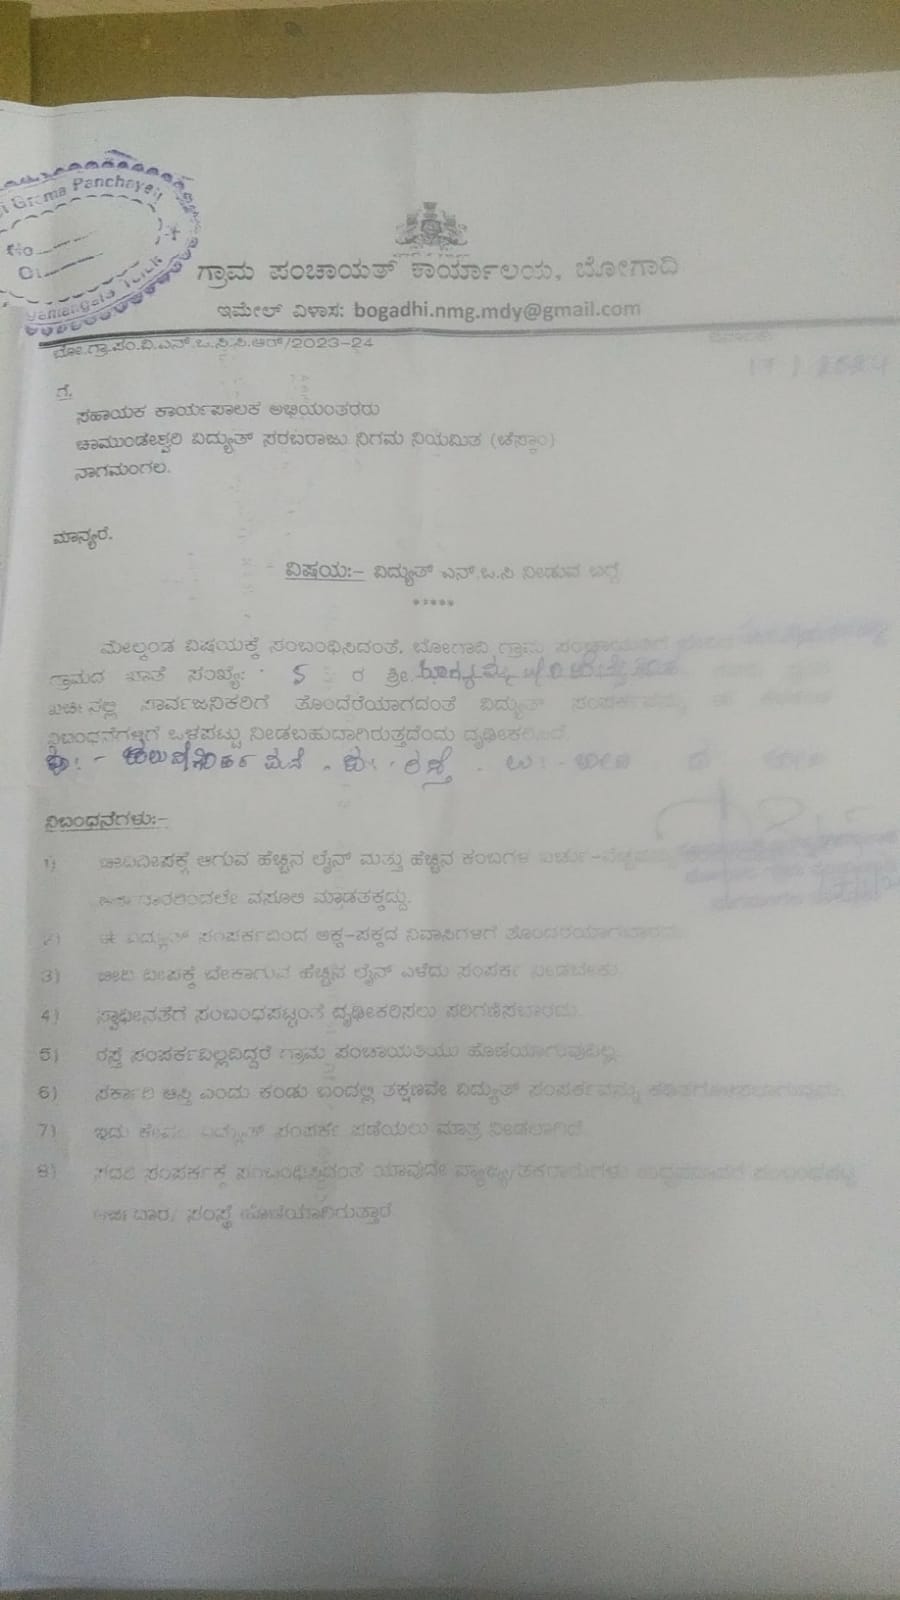 Grama Panchayeti
No
Taluk
ಗ್ರಾಮ ಪಂಚಾಯತ್ ಕಾರ್ಯಾಲಯ, ಬೋಗಾದಿ
ಇಮೇಲ್ ವಿಳಾಸ: bogadhi.nmg.mdy@gmail.com
ಬೋ.ಗ್ರಾ.ಪಂ.ವಿ.ಎನ್.ಒ.ಸಿ.ಸಿ.ಆರ್/2023-24
ಗೆ.
ಸಹಾಯಕ ಕಾರ್ಯಪಾಲಕ ಅಭಿಯಂತರರು
ಚಾಮುಂಡೇಶ್ವರಿ ವಿದ್ಯುತ್ ಸರಬರಾಜು ನಿಗಮ ನಿಯಮಿತ (ಚೆಸ್ಕಾಂ)
ನಾಗಮಂಗಲ.
ಮಾನ್ಯರೆ.
ವಿಷಯ:- ವಿದ್ಯುತ್ ಎನ್.ಒ.ಸಿ ನೀಡುವ ಬಗ್ಗೆ
*****
ಮೇಲ್ಕಂಡ ವಿಷಯಕ್ಕೆ ಸಂಬಂಧಿಸಿದಂತೆ, ಬೋಗಾದಿ ಗ್ರಾಮ ಪಂಚಾಯಿತಿಗೆ
ಗ್ರಾಮದ ಖಾತೆ ಸಂಖ್ಯೆ: 5 ರ ಶ್ರೀ
ಸಾರ್ವಜನಿಕರಿಗೆ ತೊಂದರೆಯಾಗದಂತೆ ವಿದ್ಯುತ್ ಸಂಪರ್ಕವನ್ನು ಈ ಕೆಳಕಂಡ
ನಿಬಂಧನೆಗಳಿಗೆ ಒಳಪಟ್ಟು ನೀಡಬಹುದಾಗಿರುತ್ತದೆಂದು ದೃಢೀಕರಿಸಿದೆ.
ನಿಬಂಧನೆಗಳು:-
1) ಬೀದಿದೀಪಕ್ಕೆ ಆಗುವ ಹೆಚ್ಚಿನ ಲೈನ್ ಮತ್ತು ಹೆಚ್ಚಿನ ಕಂಬಗಳ ಖರ್ಚು-ವೆಚ್ಚವನ್ನು
ವಸೂಲಿ ಮಾಡತಕ್ಕದ್ದು.
2) ಈ ವಿದ್ಯುತ್ ಸಂಪರ್ಕದಿಂದ ಅಕ್ಕ-ಪಕ್ಕದ ನಿವಾಸಿಗಳಿಗೆ ತೊಂದರೆಯಾಗಬಾರದು.
3) ಬೀದಿ ದೀಪಕ್ಕೆ ಬೇಕಾಗುವ ಹೆಚ್ಚಿನ ಲೈನ್ ಎಳೆದು ಸಂಪರ್ಕ ನೀಡಬೇಕು.
4) ಸ್ವಾಧೀನತೆಗೆ ಸಂಬಂಧಪಟ್ಟಂತೆ ದೃಢೀಕರಿಸಲು ಪರಿಗಣಿಸಬಾರದು.
5) ರಸ್ತೆ ಸಂಪರ್ಕವಿಲ್ಲವಿದ್ದರೆ ಗ್ರಾಮ ಪಂಚಾಯತಿಯು ಹೊಣೆಯಾಗುವುದಿಲ್ಲ.
6) ಸರ್ಕಾರಿ ಆಸ್ತಿ ಎಂದು ಕಂಡು ಬಂದಲ್ಲಿ ತಕ್ಷಣವೇ ವಿದ್ಯುತ್ ಸಂಪರ್ಕವನ್ನು ಕಡಿತಗೊಳಿಸಲಾಗುವುದು.
7) ಇದು ಕೇವಲ ವಿದ್ಯುತ್ ಸಂಪರ್ಕ ಪಡೆಯಲು ಮಾತ್ರ ನೀಡಲಾಗಿದೆ.
8) ಸದರಿ ಸಂಪರ್ಕಕ್ಕೆ ಸಂಬಂಧಿಸಿದಂತೆ ಯಾವುದೇ ವ್ಯಾಜ್ಯ/ತಕರಾರುಗಳು ಉದ್ಭವವಾದರೆ ಸಂಬಂಧಪಟ್ಟ
ಅರ್ಜಿದಾರ/ ಸಂಸ್ಥೆ ಹೊಣೆಯಾಗಿರುತ್ತಾರೆ